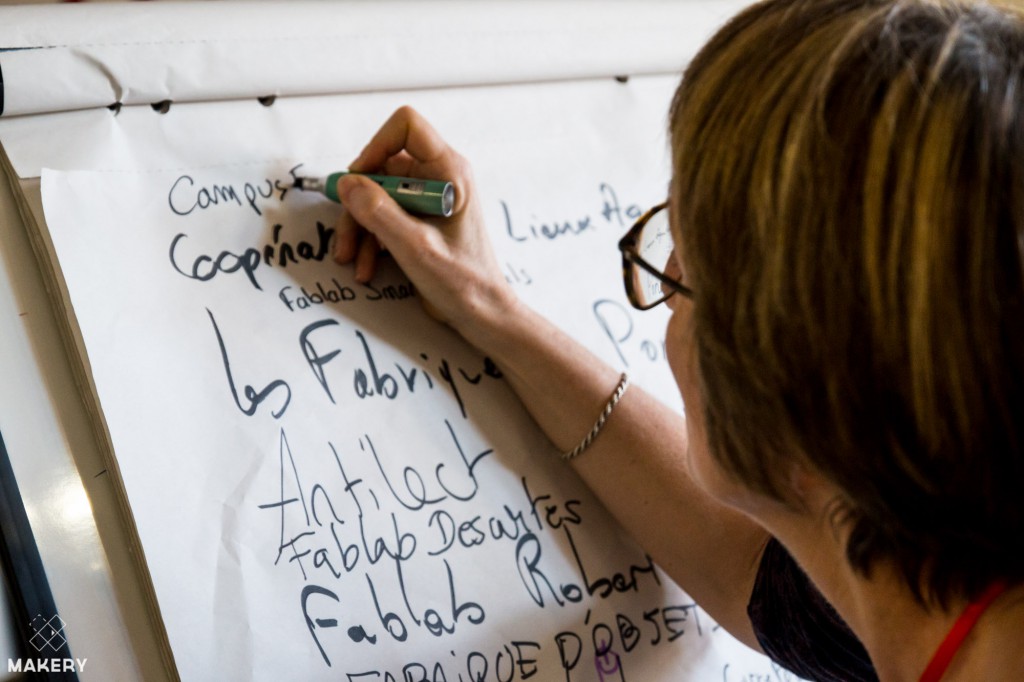 Campus
Coopérat
Lieux
Fablab
Les Fabrique
Antilect
Fablab Descartes
Fablab Robert
FABRIQUE D'OBJET
MAKERY